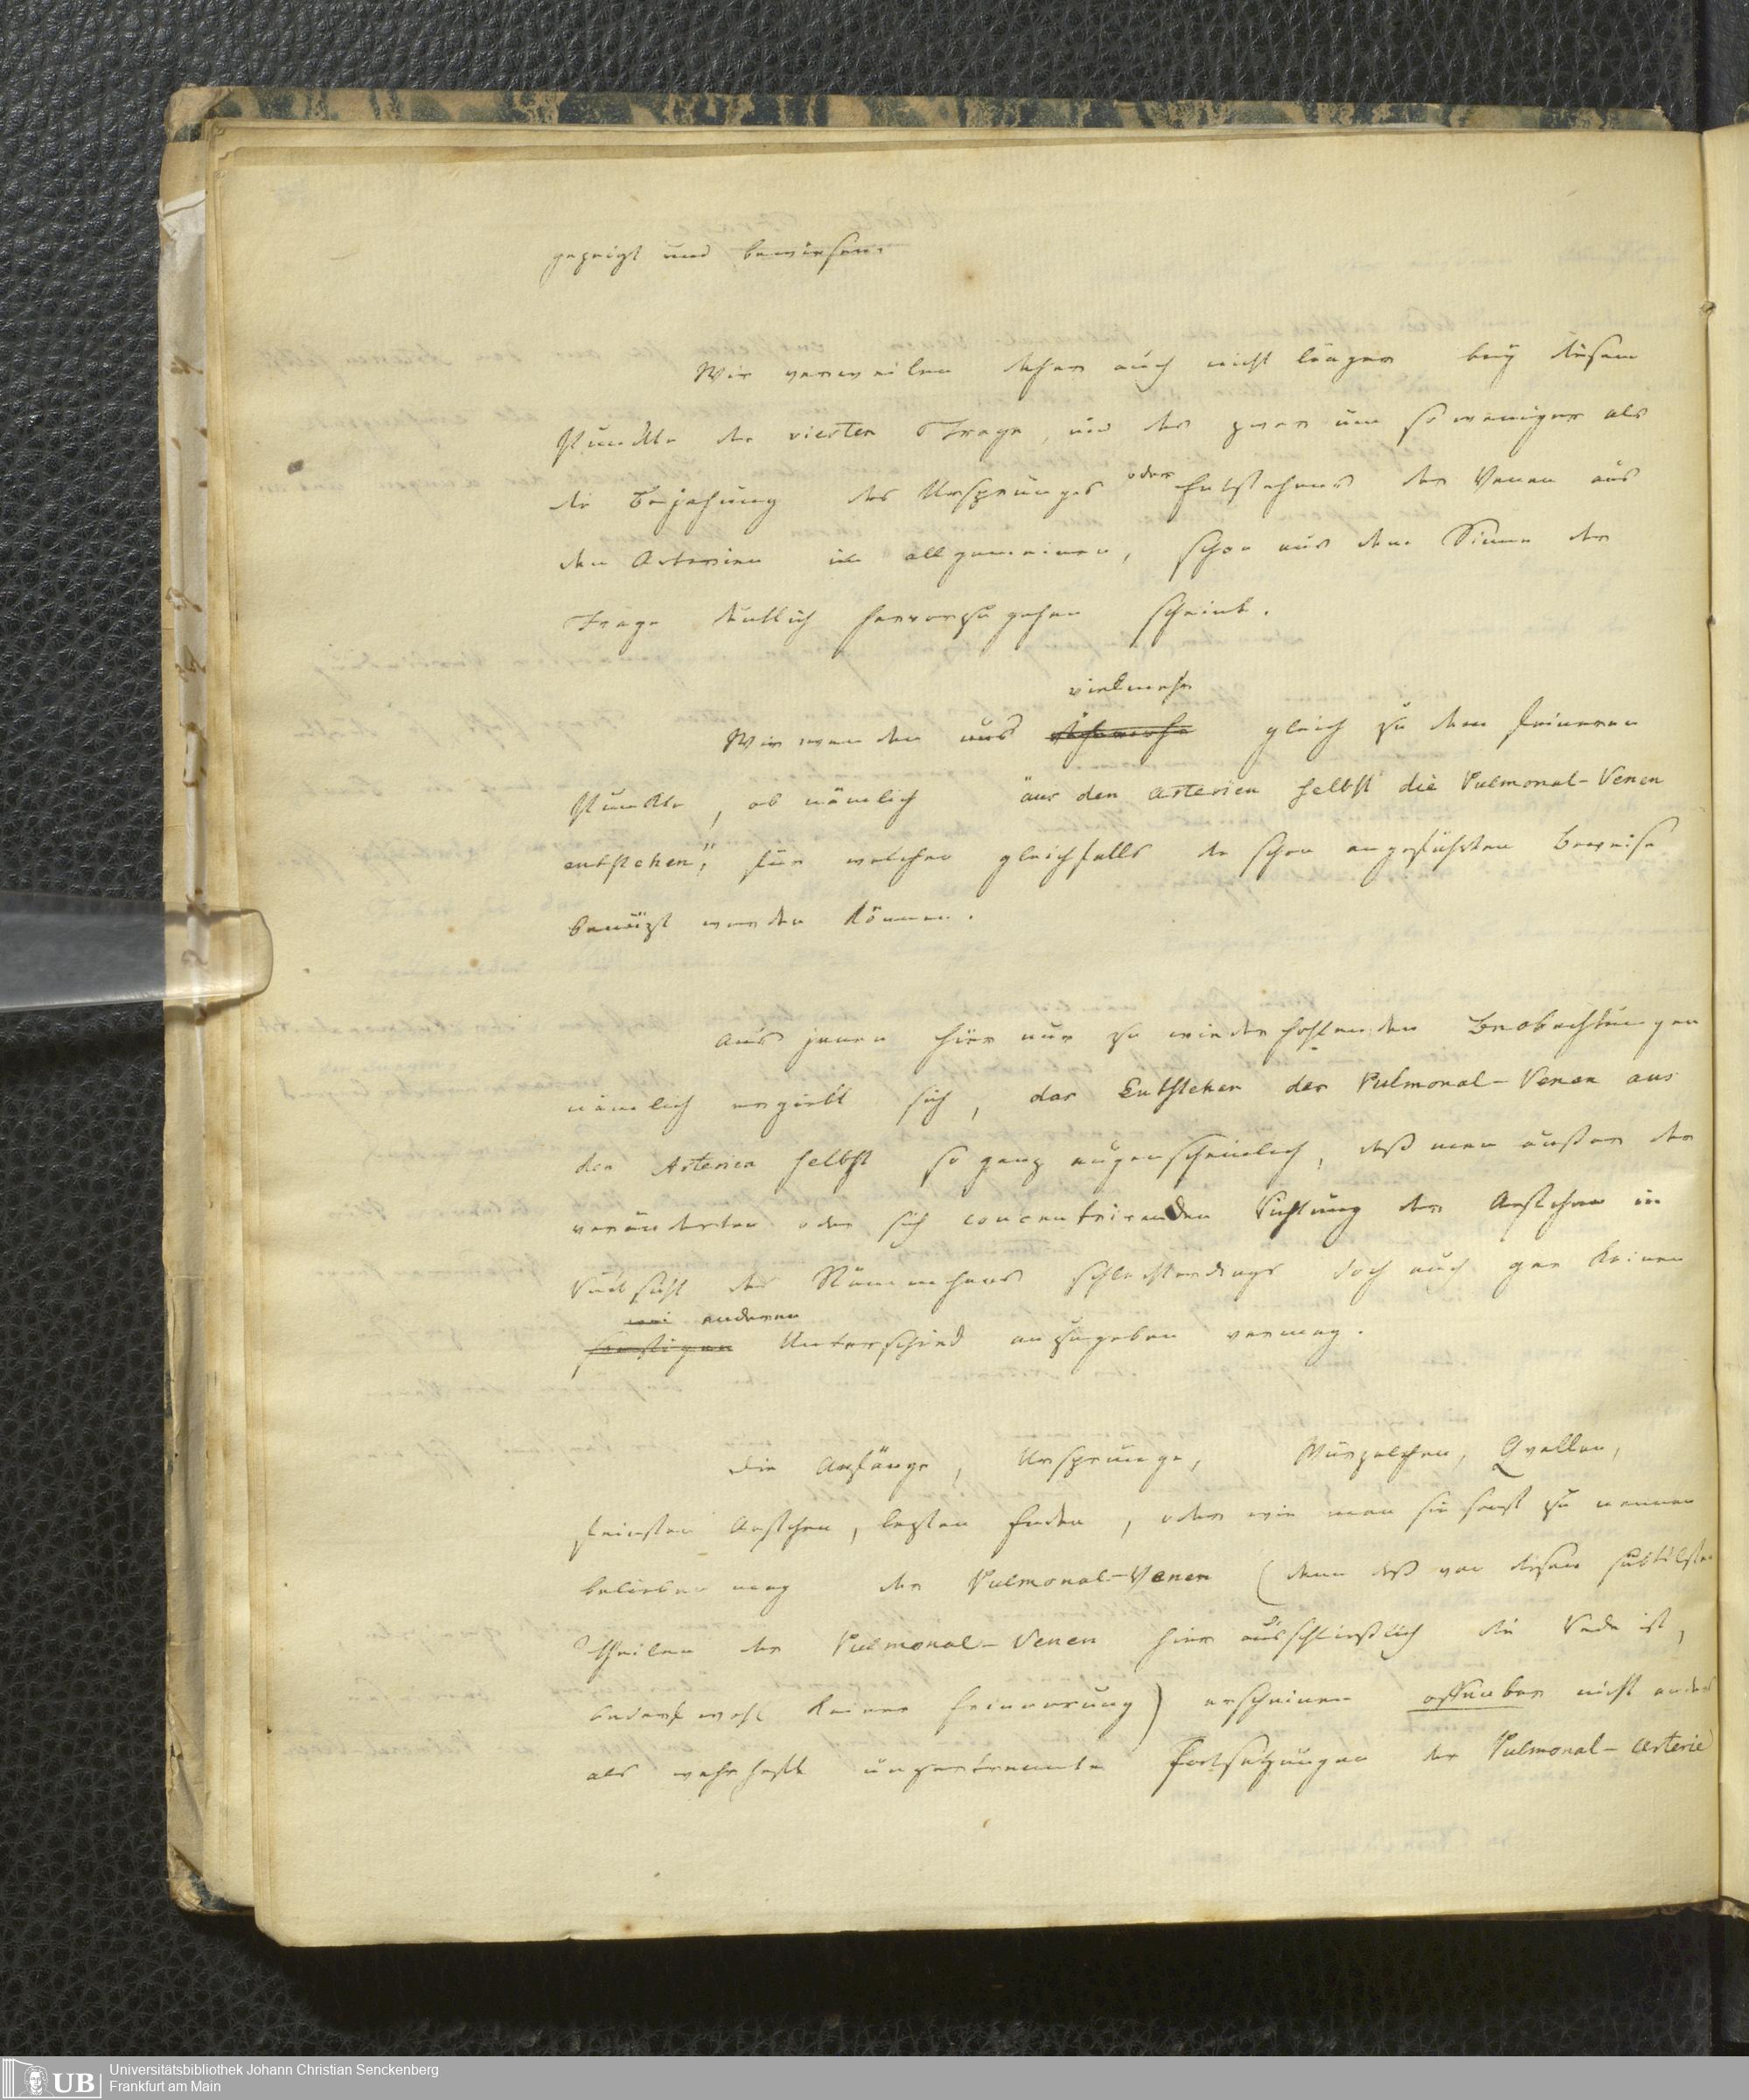 gezeigt und bewiesen.
Wir verweilen daher auch nicht länger bey diesem
Punkte der vierten Frage, und das zwar um so weniger als
die Bejahung des Ursprunges oder Entstehens der Venen aus
den Arterien im allgemeinen, schon aus dem Sinne der
Frage deutlich hervorzugehen scheint.
vielmehr
Wir wenden uns gleich zu dem feineren
Punkte, ob nämlich "aus den Arterien selbst die Pulmonal-Venen
entstehen," für welchen gleichfalls die schon angeführten Beweise
benüzt werden können.
Aus jenen hier nur zu wiederholenden Beobachtungen
nämlich ergiebt sich, das Entstehen der Pulmonal-Venen aus
den Arterien selbst so ganz augenscheinlich, daß man außer der
veränderten oder sich concentrirenden Richtung der Aestchen in
Rücksicht des Stämmchens schlechterdings doch auch gar keinen
anderen
sonstigen Unterschied anzugeben vermag.
Die Anfänge, Ursprünge, Würzelchen, Quellen,
feinsten Aestchen, lezten Enden, oder wie man sie sonst zu nennen
belieben mag der Pulmonal-Venen (denn daß von diesen subtilsten
Theilen der Pulmonal-Venen hier ausschließlich die Rede ist,
bedarf wohl keiner Erinnerung) erscheinen offenbar nicht anders
als wahrhafte ungetrennte Fortsetzungen der Pulmonal-Arterie
UB
Universitätsbibliothek Johann Christian Senckenberg
Frankfurt am Main